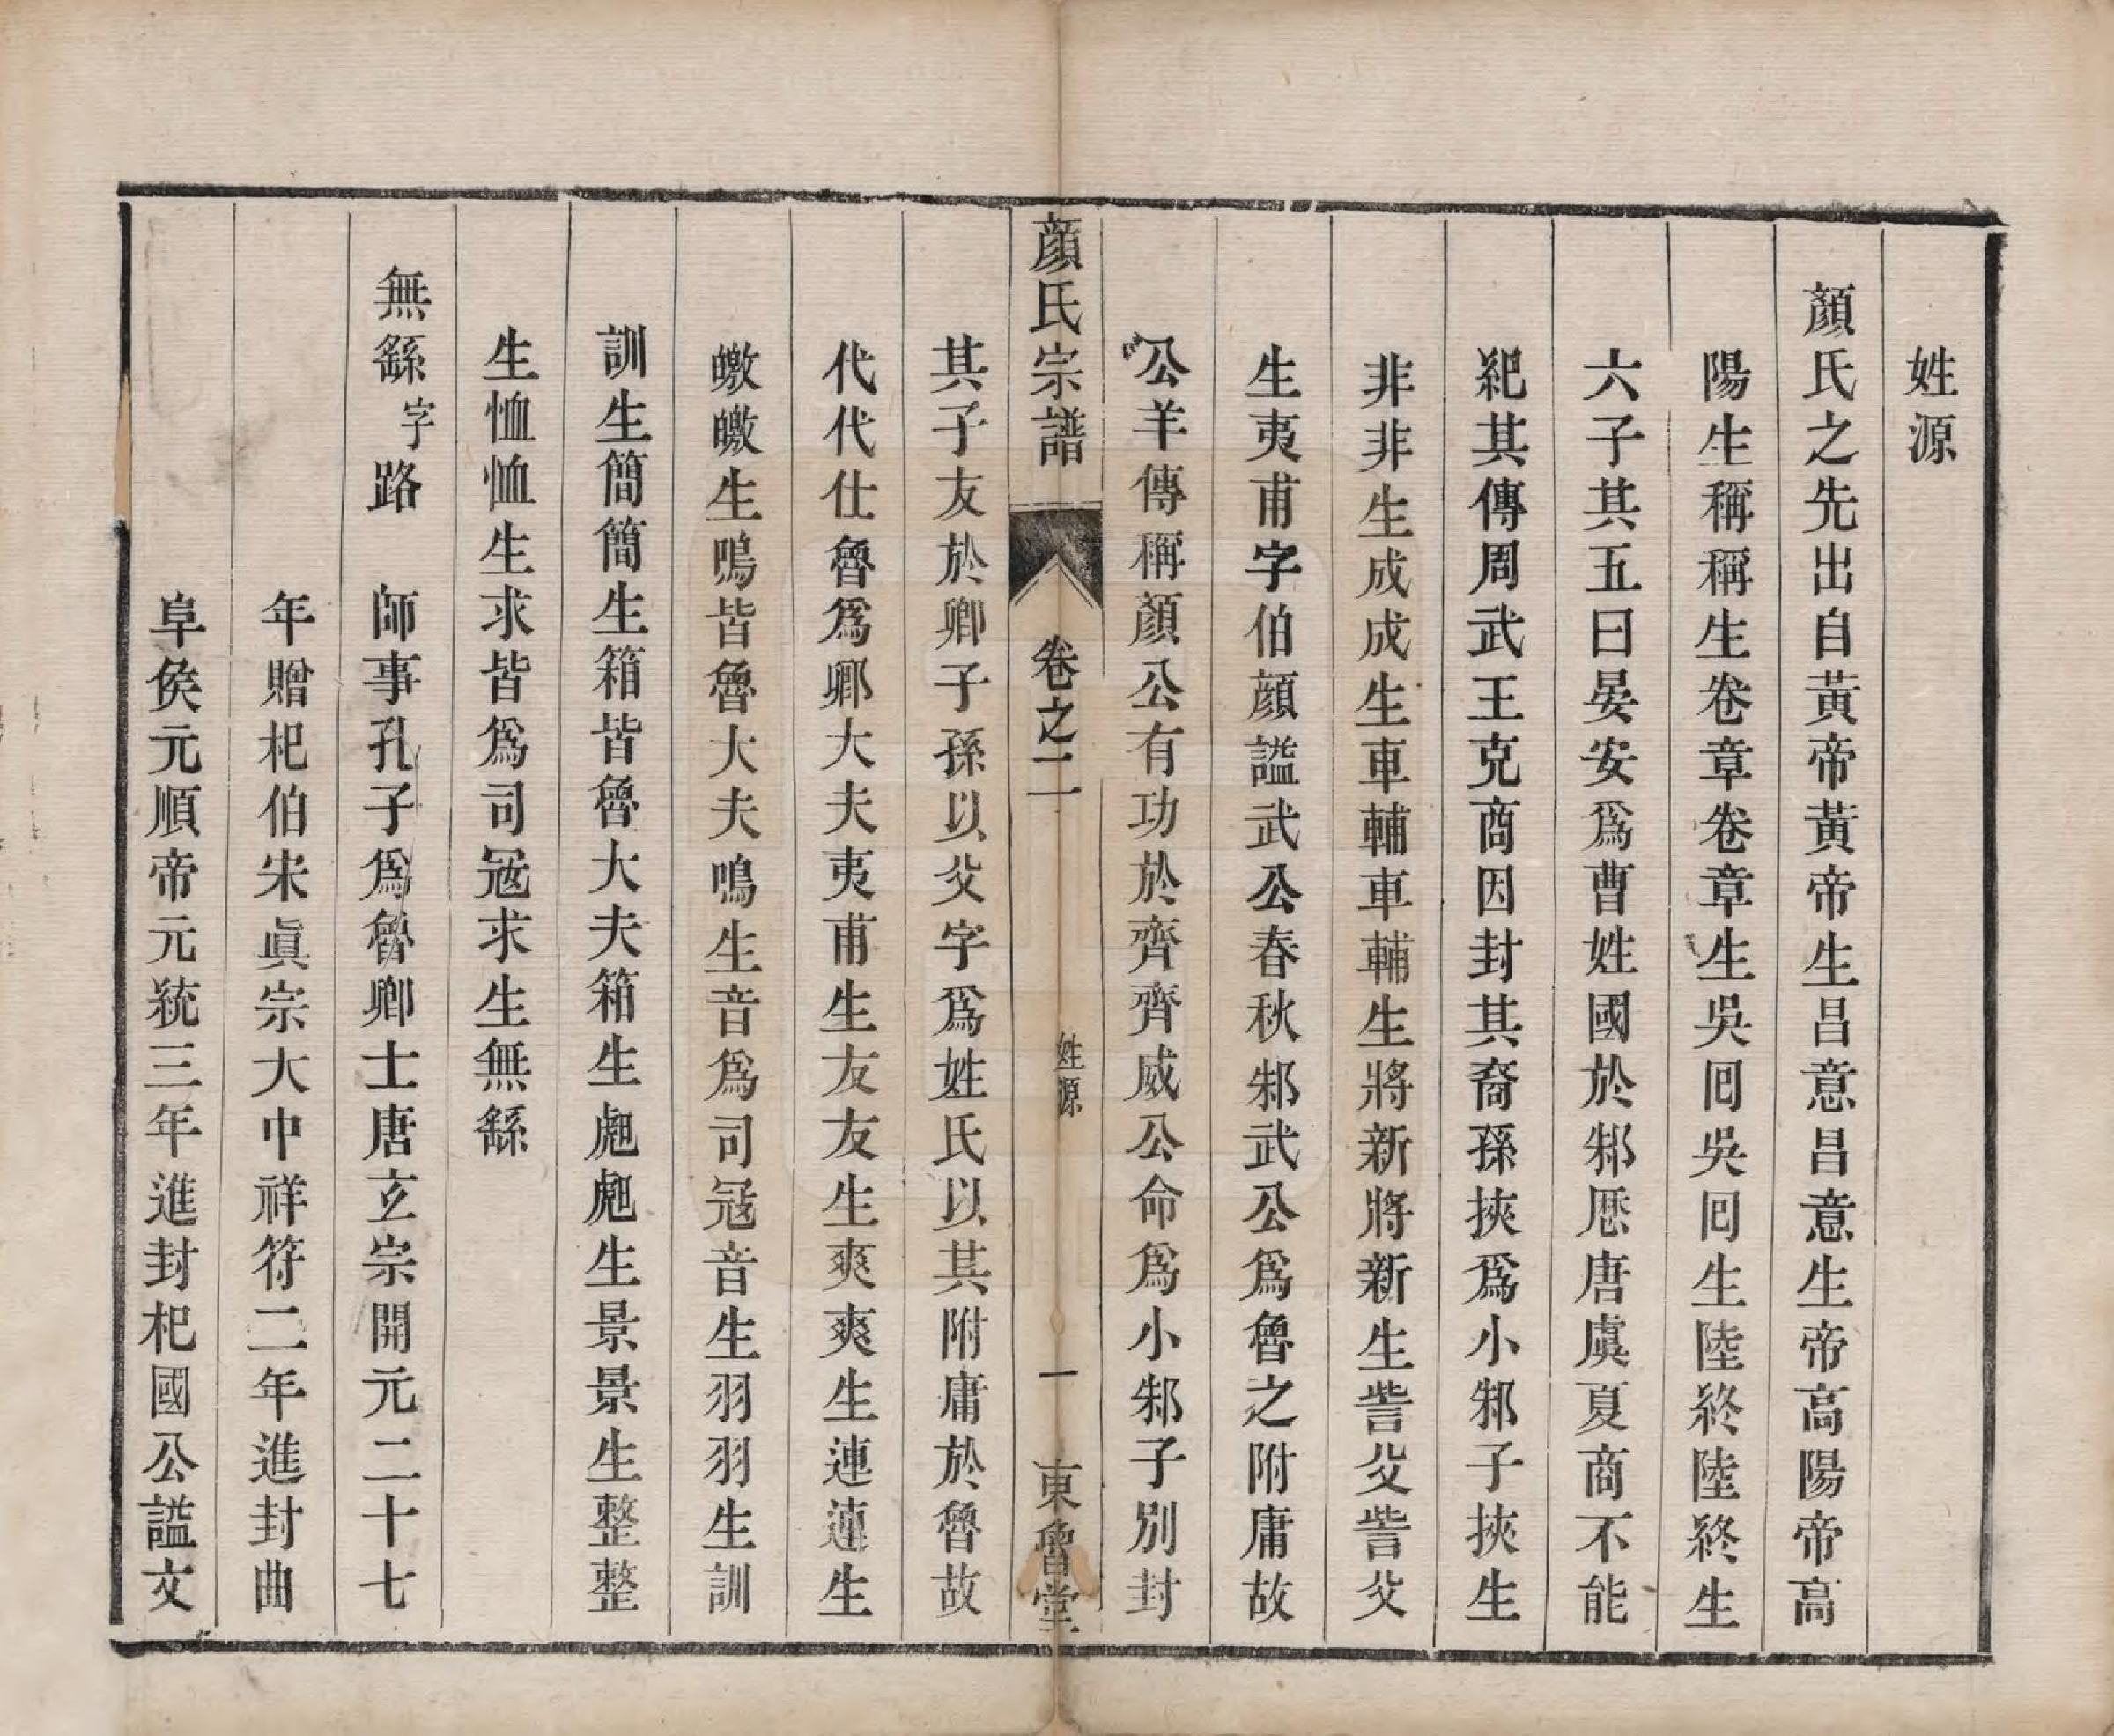 姓源
顏氏之先出自黃帝黃帝生昌意昌意生帝高陽帝高
陽生稱稱生卷章卷章生吳囘吳囘生陸終陸終生
六子其五曰晏安爲曹姓國於邾厯唐虞夏商不能
紀其傳周武王克商因封其裔孫挾爲小邾子挾生
非非生成成生車輔車輔生將新將新生訾父訾父
生夷甫字伯顏謚武公春秋邾武公爲魯之附庸故
公羊傳稱顏公有功於齊齊威公命爲小邾子別封
顏氏宗譜 卷之二 姓源 一 東魯堂
其子友於郳子孫以父字爲姓氏以其附庸於魯故
代代仕魯爲卿大夫夷甫生友友生爽爽生連連生
皦皦生鳴皆魯大夫鳴生音爲司冦音生羽羽生訓
訓生簡簡生箱皆魯大夫箱生虺虺生景景生整整
生恤恤生求皆爲司冦求生無繇
無繇字路 師事孔子爲魯卿士唐玄宗開元二十七
年贈杞伯宋眞宗大中祥符二年進封曲
阜侯元順帝元統三年進封杞國公謚文